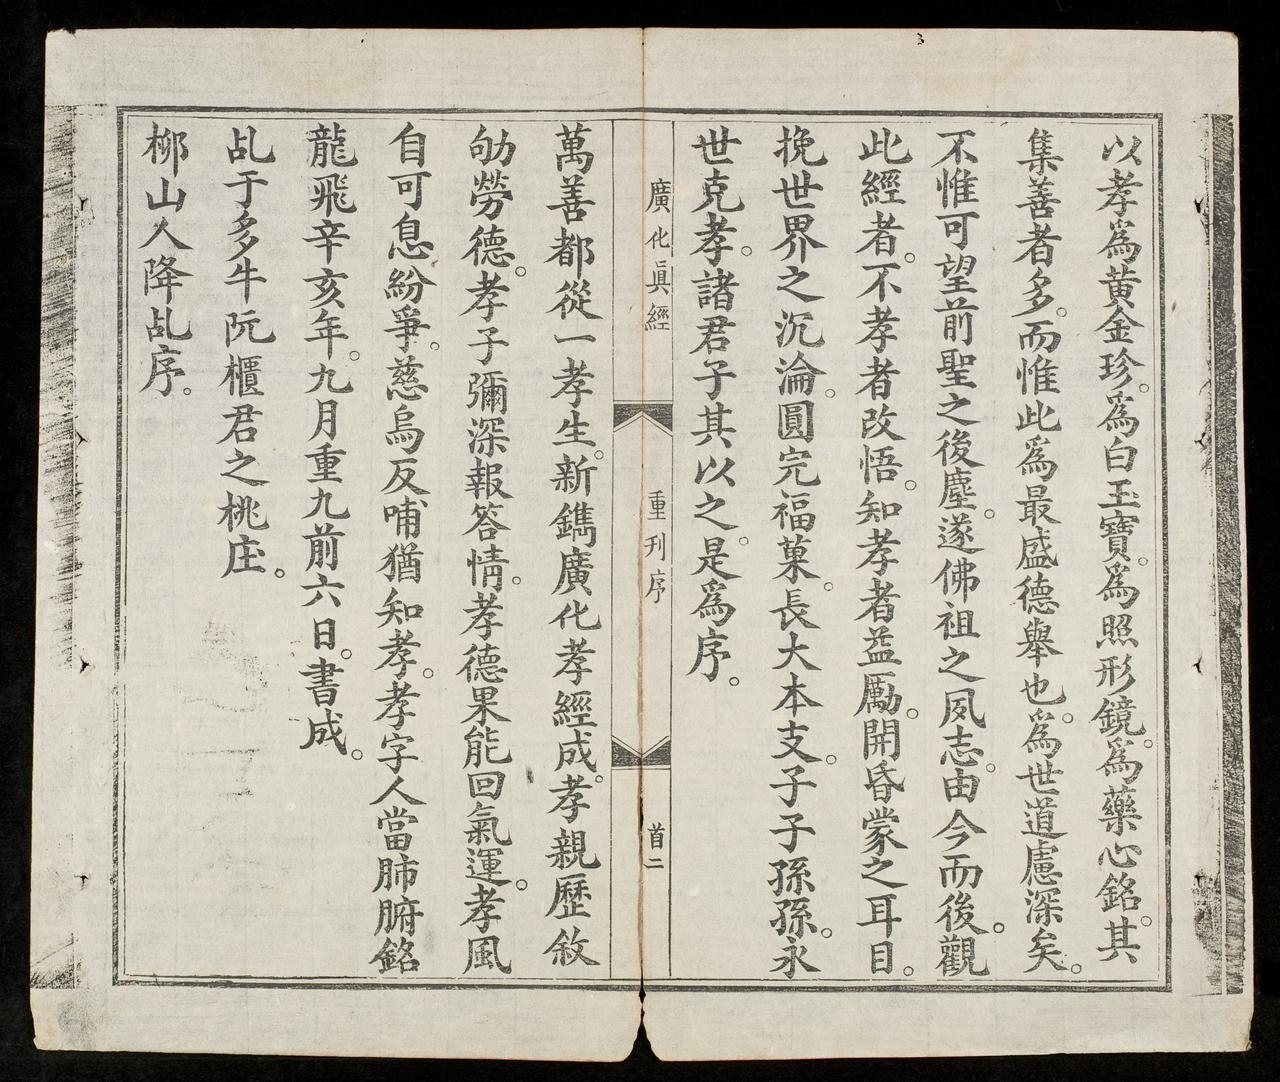 以孝爲黃金珍。爲白玉寶。爲照形鏡。爲藥心銘。其
集善者多。而惟此爲最盛德舉也。爲世道慮深矣。
不惟可望前聖之後塵。遂佛祖之夙志。由今而後。觀
此經者。不孝者改悟。知孝者益勵。開昏蒙之耳目。
挽世界之沉淪。圓完福菓。長大本支。子子孫孫。永
世克孝。諸君子其以之。是爲序。
廣化眞經
重刊序
首二
萬善都從一孝生。新鐫廣化孝經成。孝親歷敘
劬勞德。孝子彌深報答情。孝德果能回氣運。孝風
自可息紛爭。慈烏反哺猶知孝。孝字人當肺腑銘
龍飛辛亥年。九月重九前六日。書成。
乩于多牛阮櫃君之桃庄。
柳山人降乩序。